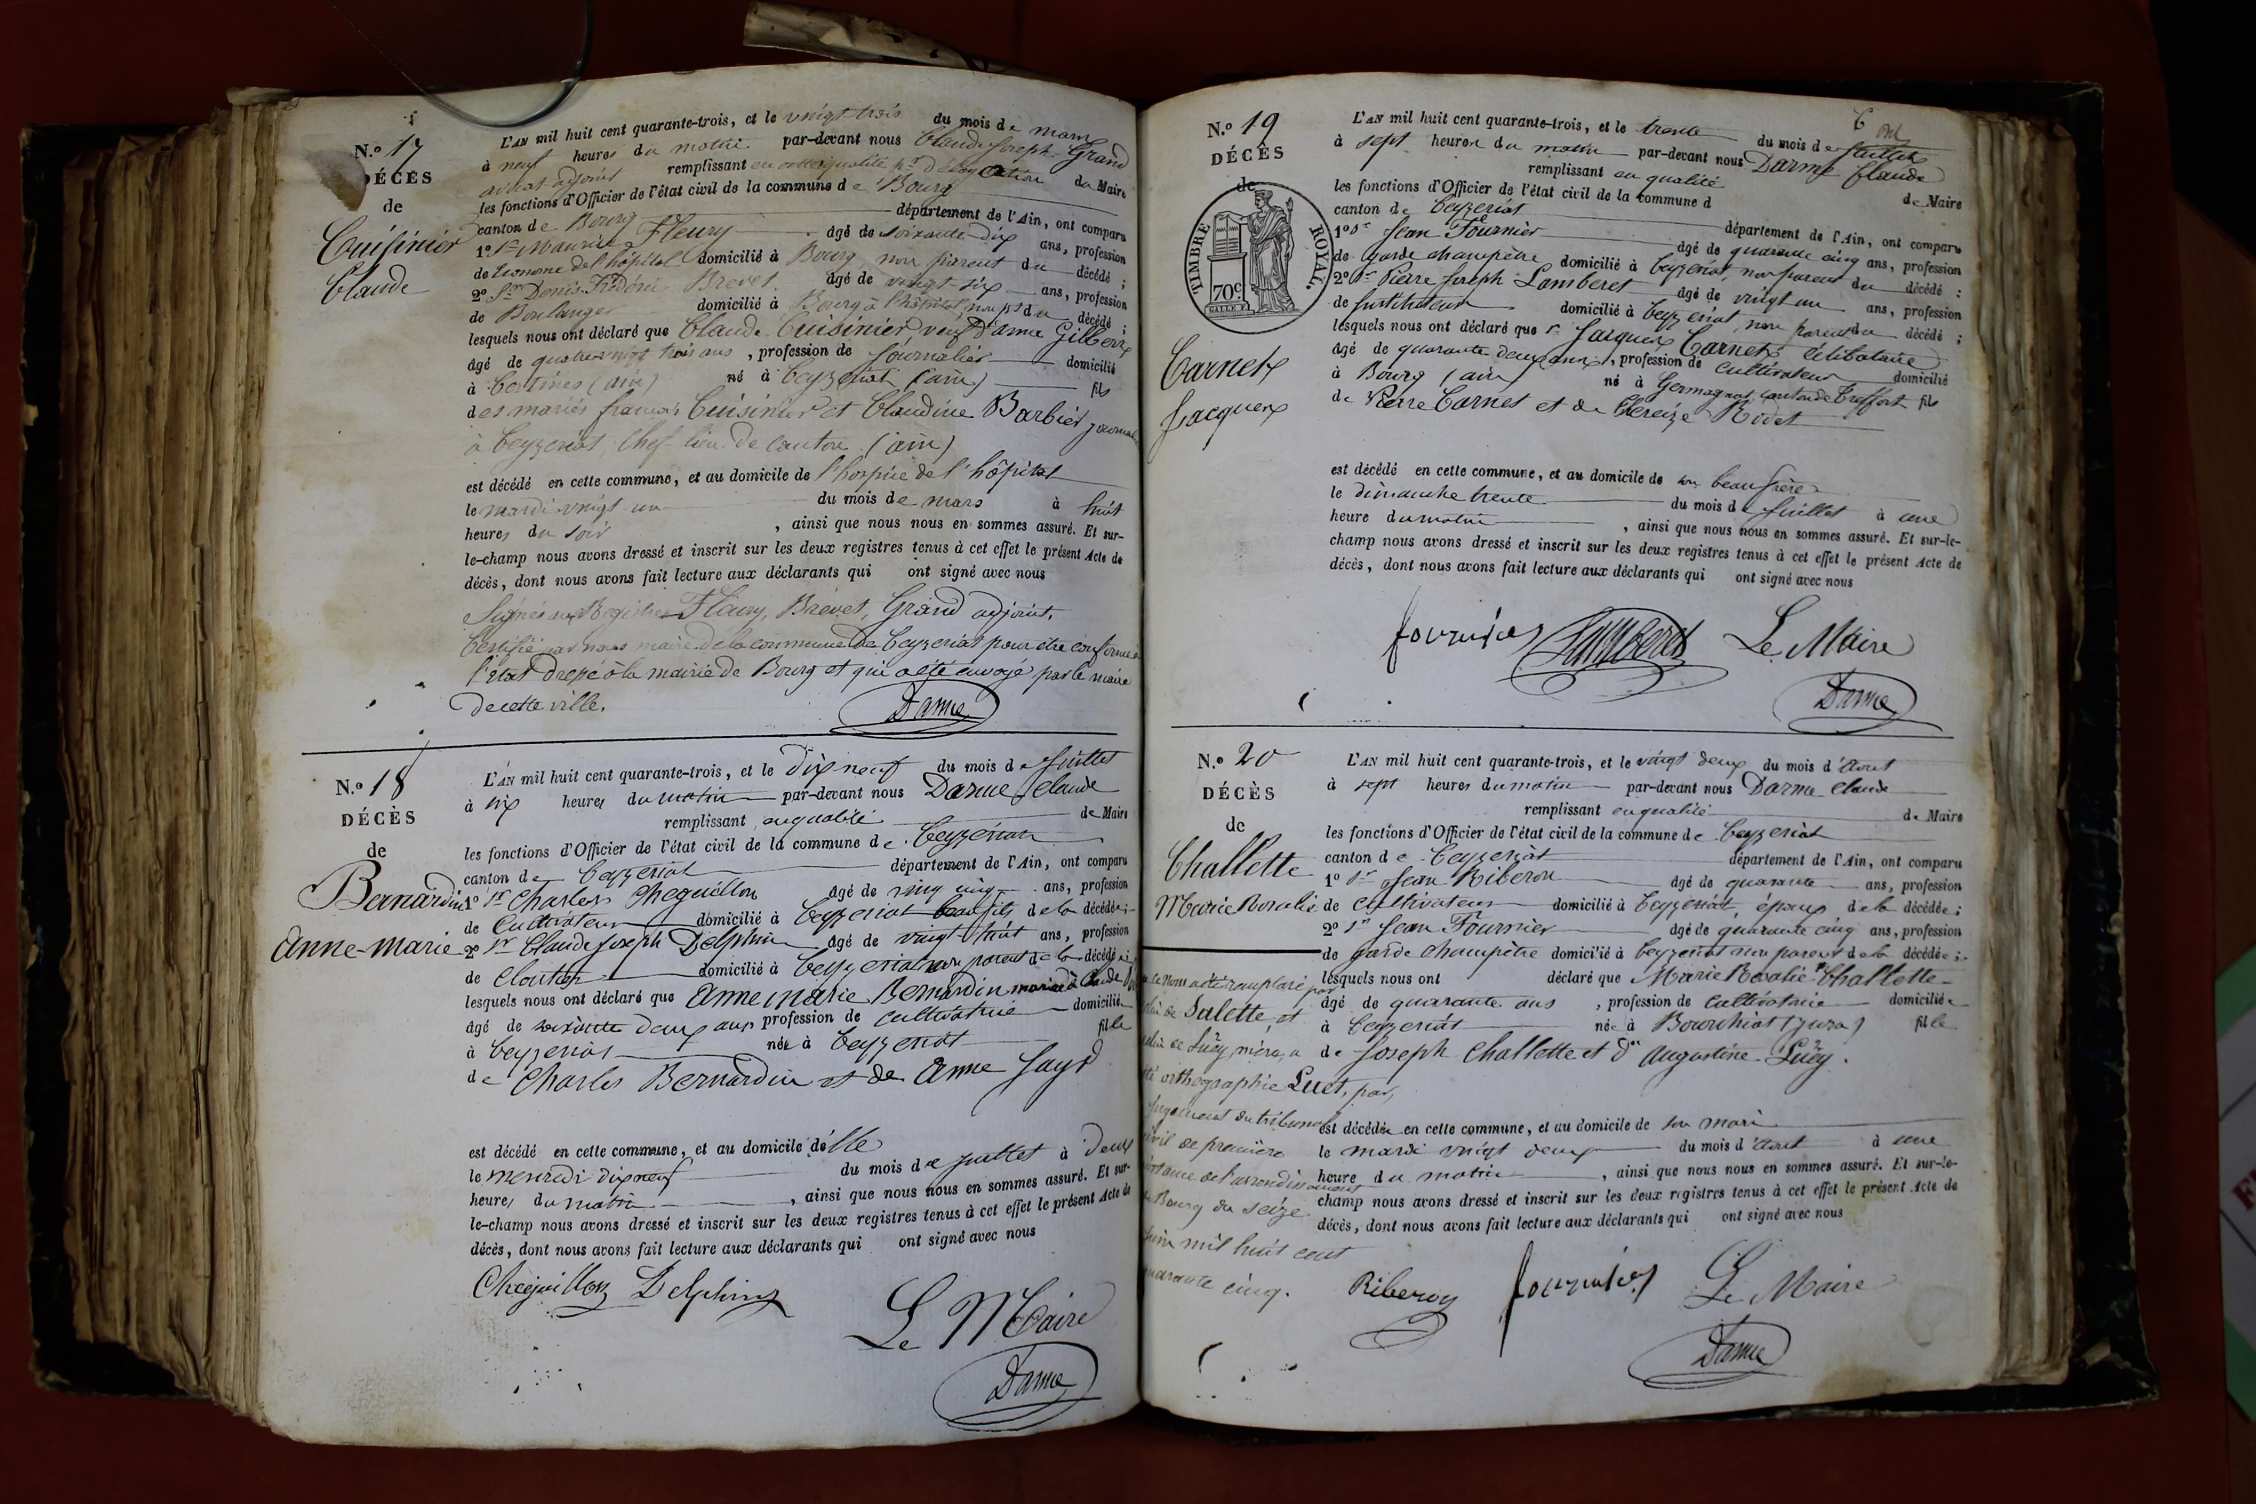 N.º 17
DÉCÈS
de
Cuisinier
Claude
L'AN mil huit cent quarante-trois, et le vingt trois du mois de mars
à neuf heures du matin par-devant nous Claude Joseph Grand
avocat adjoint remplissant du Maire
les fonctions d'Officier de l'état civil de la commune de Bourg
canton de Bourg département de l'Ain, ont comparu
1º Sr Maurice Fleury âgé de soixante-dix ans, profession
de Econome de l'hôpital domicilié à Bourg non parent du décédé ;
2º Sr Denis Frédéric Brevet âgé de vingt-six ans, profession
de Boulanger domicilié à Bourg à l'hôpital, non pt du décédé ;
lesquels nous ont déclaré que Claude Cuisinier veuf d'anne Gilbert
âgé de quatre-vingt trois ans, profession de Journalier domicilié
à Certines (ain) né à Ceyzeriat (ain) fils
des mariés français Cuisinier et Claudine Barbier
à Ceyzeriat, Chef lieu de canton (ain)
est décédé en cette commune, et au domicile de l'hospice de l'hôpital
le mardi vingt un du mois de mars à huit
heures du soir, ainsi que nous nous en sommes assuré. Et sur-
le-champ nous avons dressé et inscrit sur les deux registres tenus à cet effet le présent Acte de
décès, dont nous avons fait lecture aux déclarants qui ont signé avec nous
Signés aux Registres Fleury, Brevet, Grand adjoint.
Certifié par nous maire de la commune de Ceyzeriat pour être conforme à
l'état dressé à la mairie de Bourg et qui a été envoyé par le maire
de cette ville.
Darme
N.º 18
DÉCÈS
de
Bernardin
Anne-marie
L'AN mil huit cent quarante-trois, et le dix neuf du mois de Juillet
à six heures du matin par-devant nous Darme Claude
remplissant en qualité de Maire
les fonctions d'Officier de l'état civil de la commune de Ceyzeriat
canton de Ceyzeriat département de l'Ain, ont comparu
1º Sr Charles Chequillon âgé de vingt cinq ans, profession
de Cultivateur domicilié à Ceyzeriat beau fils de la décédée ;
2º Sr Claude Joseph Delphin âgé de vingt-huit ans, profession
de Cloutier domicilié à Ceyzeriat non parent de la décédée ;
lesquels nous ont déclaré que Anne marie Bernardin mariée à Claude
âgé de soixante deux ans profession de cultivatrice domiciliée
à Ceyzeriat née à Ceyzeriat fille
de Charles Bernardin et de Anne Jayr
est décédé en cette commune, et au domicile d'elle
le mercredi dix neuf du mois de juillet à deux
heures du matin, ainsi que nous nous en sommes assuré. Et sur-
le-champ nous avons dressé et inscrit sur les deux registres tenus à cet effet le présent Acte de
décès, dont nous avons fait lecture aux déclarants qui ont signé avec nous
Chequillon Delphin
Le Maire
Darme
N.º 19
DÉCÈS
de
TIMBRE ROYAL.
70c
Carnet
Jacques
L'AN mil huit cent quarante-trois, et le trente du mois de Juillet
à sept heures du matin par-devant nous Darme Claude
remplissant en qualité de Maire
les fonctions d'Officier de l'état civil de la commune d
canton de Ceyzeriat département de l'Ain, ont comparu
1º Sr Jean Fournier âgé de quarante cinq ans, profession
de garde champêtre domicilié à Ceyzeriat, non parent du décédé ;
2º Sr Pierre Joseph Lamberet âgé de vingt un ans, profession
de Instituteur domicilié à Ceyzeriat, non parent du décédé ;
lesquels nous ont déclaré que Sr Jacques Carnet célibataire
âgé de quarante deux ans, profession de Cultivateur domicilié
à Bourg (ain) né à Germagnat, canton de Treffort fils
de Pierre Carnet et de Thereize Rodet
est décédé en cette commune, et au domicile de son beau frère
le dimanche trente du mois de Juillet à une
heure du matin, ainsi que nous nous en sommes assuré. Et sur-le-
champ nous avons dressé et inscrit sur les deux registres tenus à cet effet le présent Acte de
décès, dont nous avons fait lecture aux déclarants qui ont signé avec nous
fournier Lamberet Le Maire
Darme
N.º 20
DÉCÈS
de
Challette
Marie Rosalie
L'AN mil huit cent quarante-trois, et le vingt deux du mois d'Aout
à sept heures du matin par-devant nous Darme Claude
remplissant en qualité de Maire
les fonctions d'Officier de l'état civil de la commune de Ceyzeriat
canton de Ceyzeriat département de l'Ain, ont comparu
1º Sr Jean Riberon âgé de quarante ans, profession
de cultivateur domicilié à Ceyzeriat, époux de la décédée ;
2º Sr Jean Fournier âgé de quarante cinq ans, profession
de garde champêtre domicilié à Ceyzeriat non parent de la décédée ;
lesquels nous ont déclaré que Marie Rosalie Challette
âgé de quarante ans, profession de cultivatrice domiciliée
à Ceyzeriat née à Bourchiat (Jura) fille
de Joseph Challette et d'augustine Luëy.
est décédée en cette commune, et au domicile de son mari
le mardi vingt deux du mois d'Aout à une
heure du matin, ainsi que nous nous en sommes assuré. Et sur-le-
champ nous avons dressé et inscrit sur les deux registres tenus à cet effet le présent Acte de
décès, dont nous avons fait lecture aux déclarants qui ont signé avec nous
le Nom a été remplacé par
celui de Salette, et
celui de Luëy, mère, a
été orthographié Luet, par
Jugement du tribunal
civil de première
instance de l'arrondissement
de Bourg du seize
Juin mil huit cent
quarante cinq.
Riberon fournier Le Maire
Darme